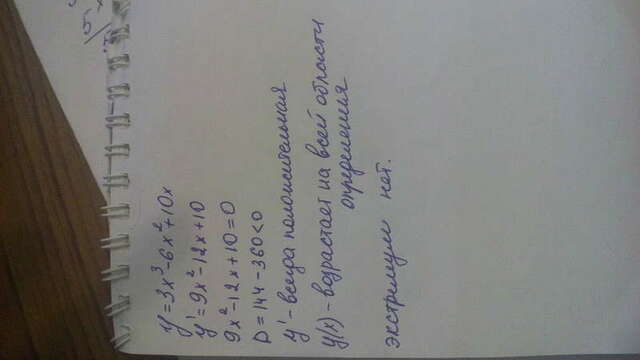 y=3x³-6x²+10x
y'=9x²-12x+10
9x²-12x+10=0
D=144-360<0
y'-всегда положительная
y(x)-возрастает на всей области
определения
экстремум нет.